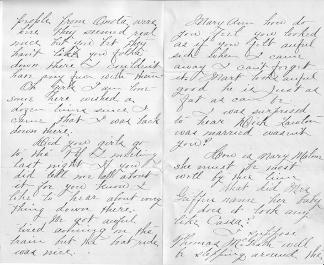 people from Anota, were
here they seemed real
nice but you bet they
hadn't like you folks
down there. I couldn't
have any fun with them
Oh girls I am lone-
some here wished a
dozen times since I
came that I was back
down there.
Did you girls go
to the meeting
last night - If you
did tell me all about
it for you know I
like to hear about every
thing down there.
I be got awful
tired on the
train but the boat ride
was nice.
Mary Ann how do
you feel you looked
as if you felt awful
sick when I came
away I can't forget
it. Mart looks awful
good he is just as
fat as can be.
I was surprised
to hear Dick
was married, wasn't
you?
How is Mary
she must be most
well by this time.
What did Mrs
Gaffin name her baby
does it look any
like Cassa?
I suppose
Thomas will
be stepping around the